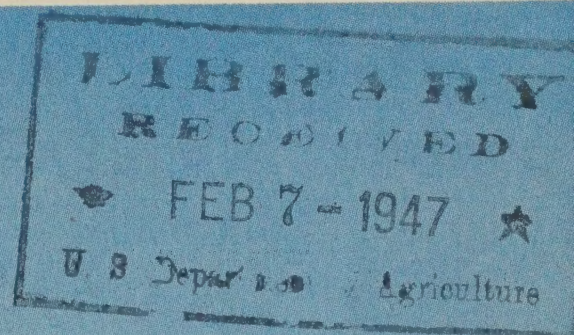 LIBRARY
RECEIVED
★ FEB 7 - 1947 ★
U S Department of Agriculture